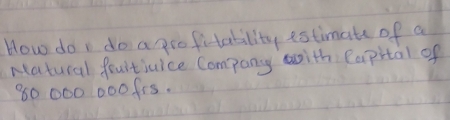 How do i do a profitability estimate of a
Natural fruitjuice Company with Capital of
80 000 000 frs.